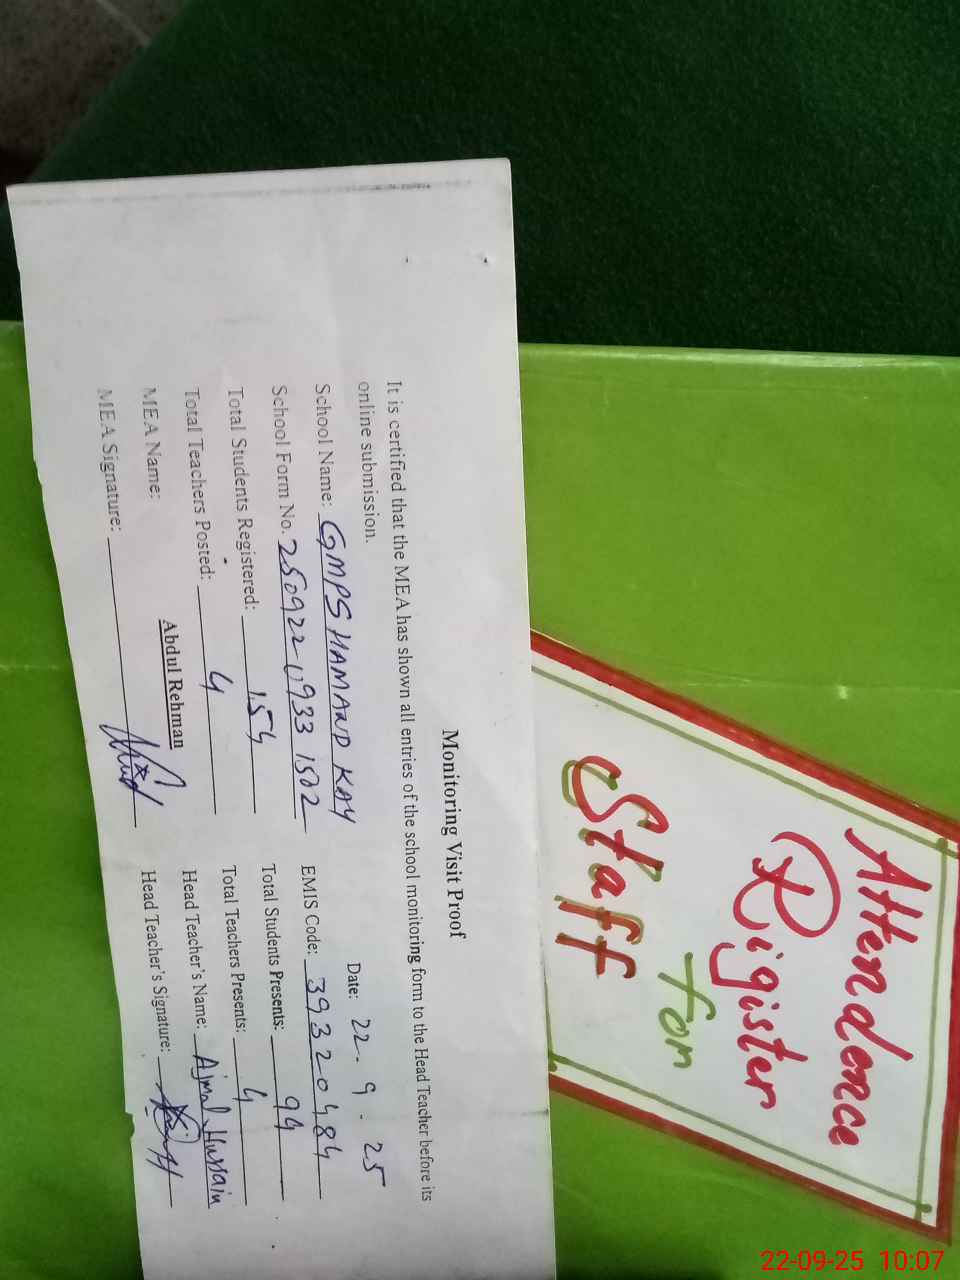 Monitoring Visit Proof
Date: 22.9.25
It is certified that the MEA has shown all entries of the school monitoring form to the Head Teacher before its
online submission.
School Name: GMPS HAMAND KAY EMIS Code: 39320484
School Form No. 250922 0933 1502 Total Students Presents: 94
Total Students Registered: 154 Total Teachers Presents: 4
Total Teachers Posted: 4 Head Teacher's Name: Ajmal Hussain
MEA Name: Abdul Rehman Head Teacher's Signature:
MEA Signature:
Attendence
Rigister
For
Staff
22-09-25 10:07